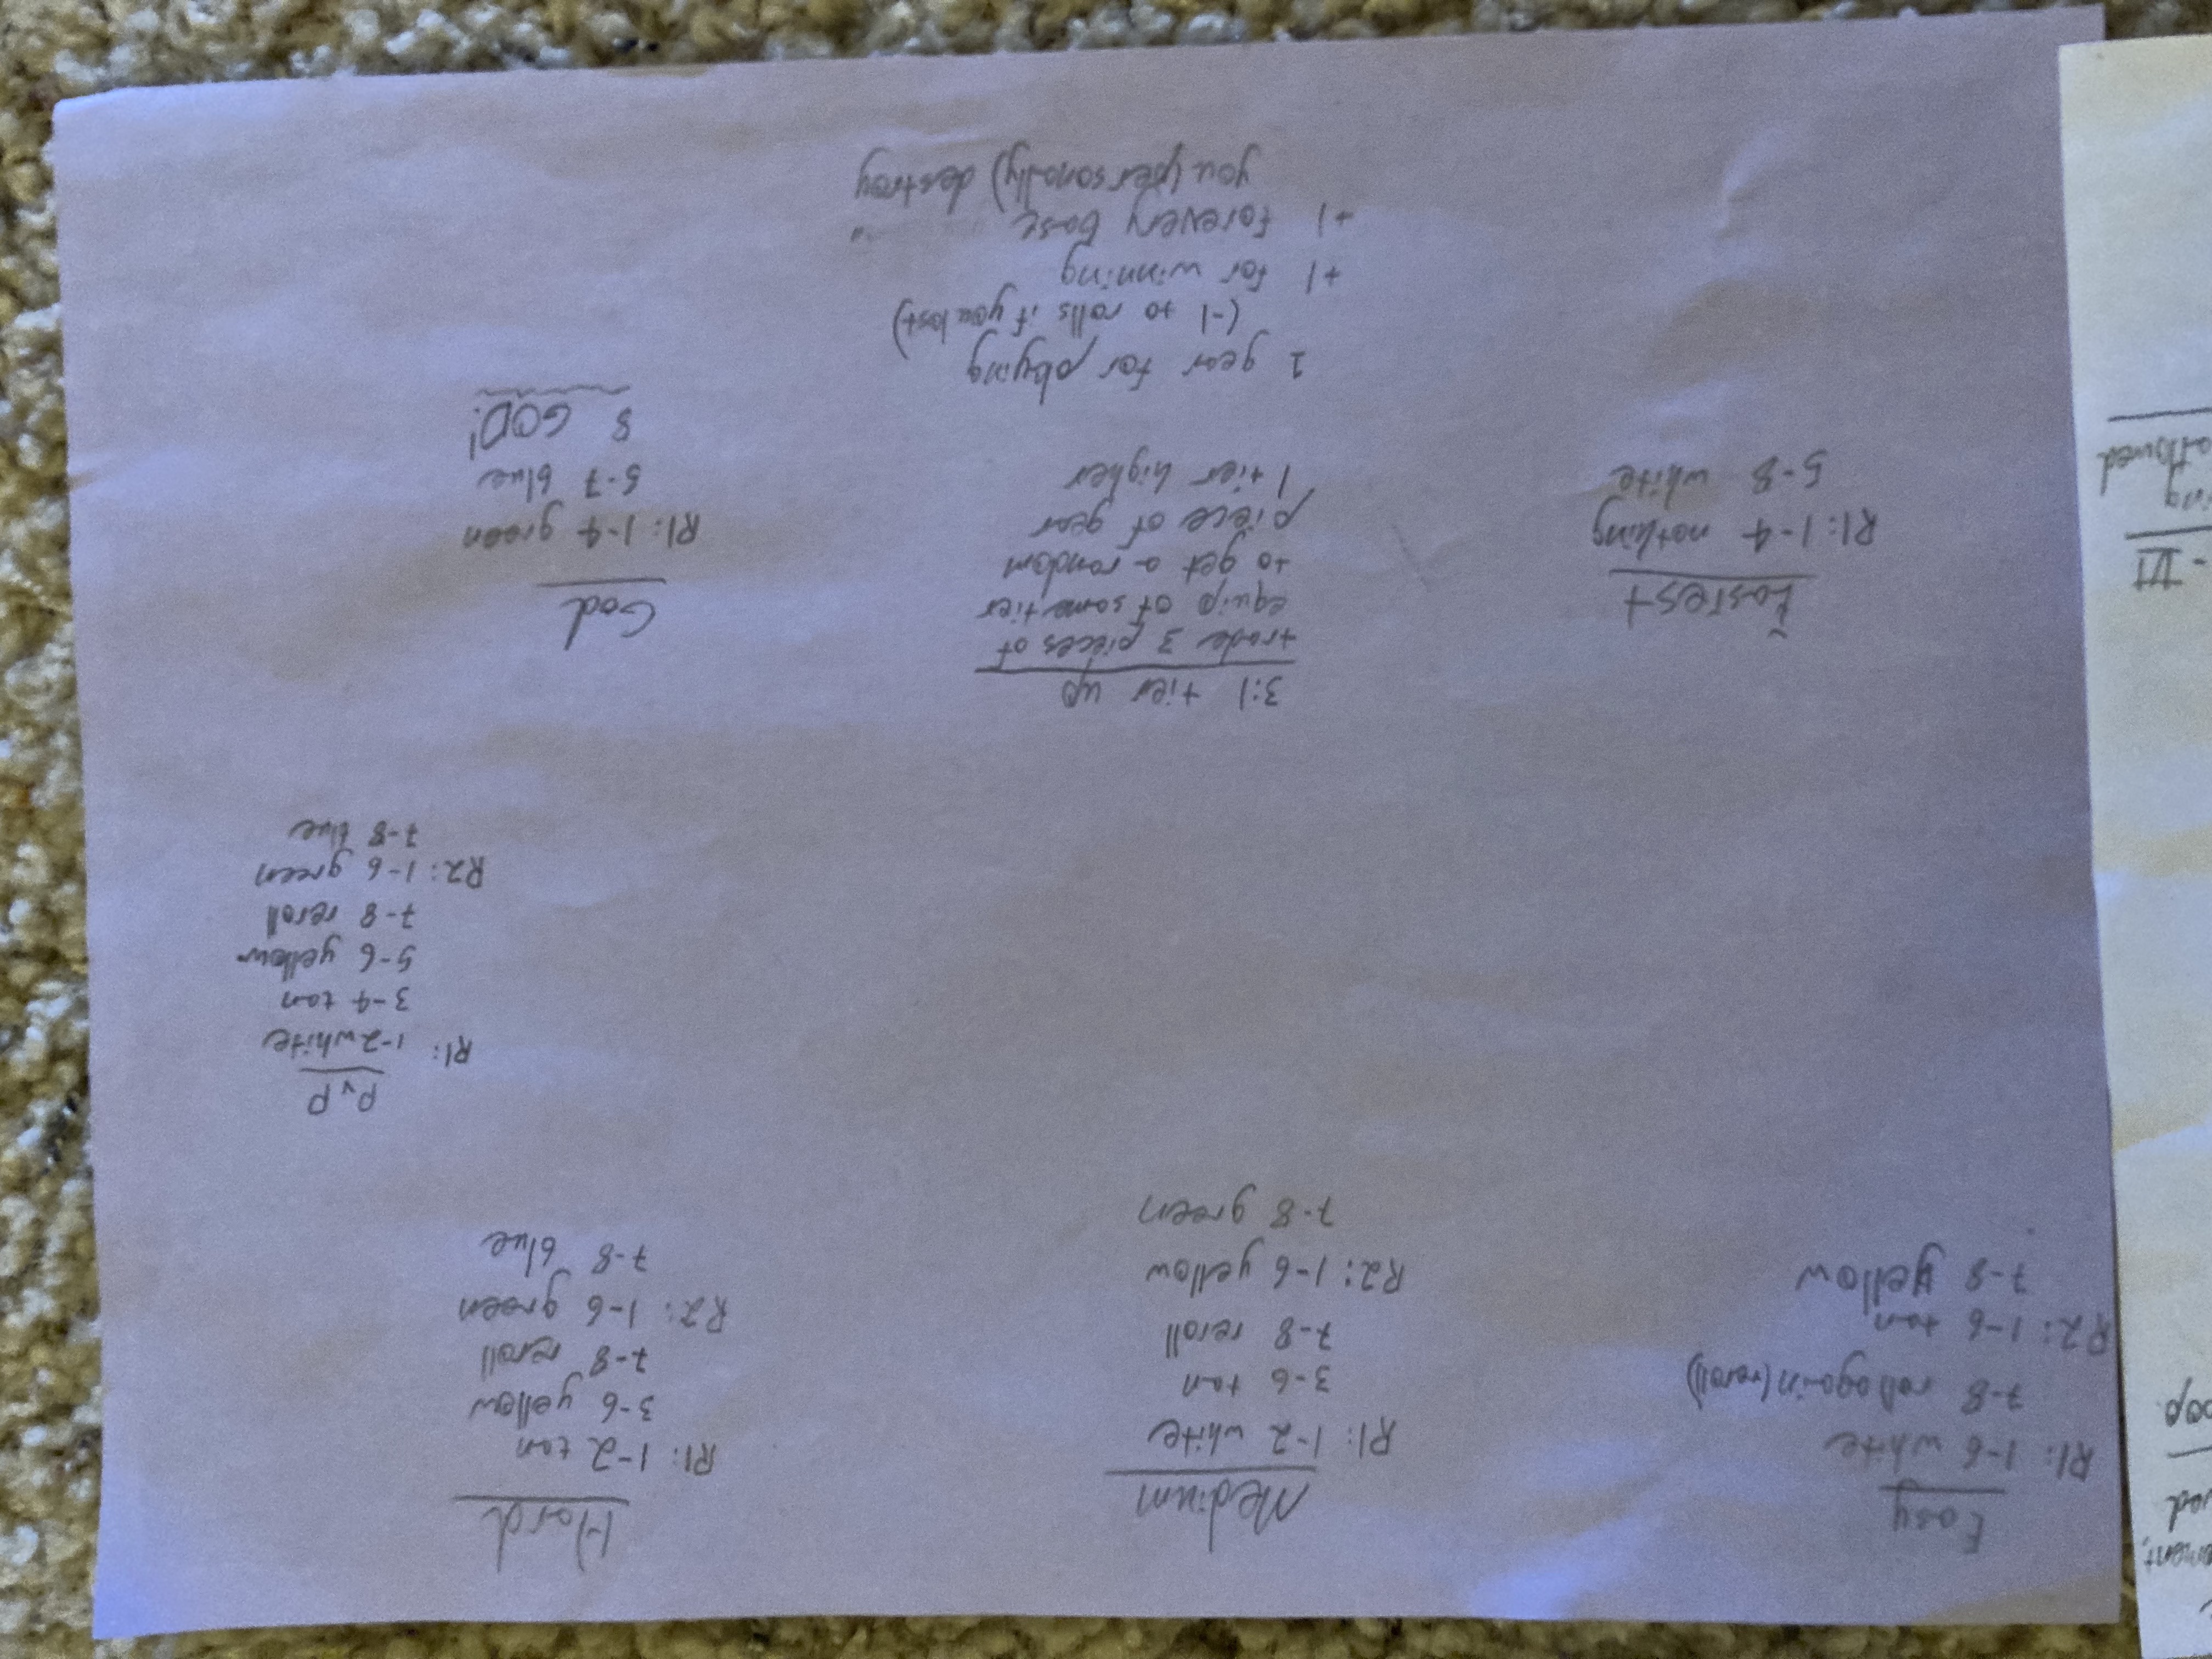 Easy
R1: 1-6 white
7-8 roll again (reroll)
R2: 1-6 tan
7-8 yellow
Medium
R1: 1-2 white
3-6 tan
7-8 reroll
R2: 1-6 yellow
7-8 green
Hard
R1: 1-2 tan
3-6 yellow
7-8 reroll
R2: 1-6 green
7-8 blue
PvP
R1: 1-2 white
3-4 tan
5-6 yellow
7-8 reroll
R2: 1-6 green
7-8 blue
Easiest
R1: 1-4 nothing
5-8 white
3:1 tier up
trade 3 pieces of
equip of same tier
to get a random
piece of gear
1 tier higher
1 gear for playing
(-1 to rolls if you lost)
+1 for winning
+1 for every base
you (personally) destroy
God
R1: 1-4 green
5-7 blue
8 GOD!
oop.
- VI
allowed